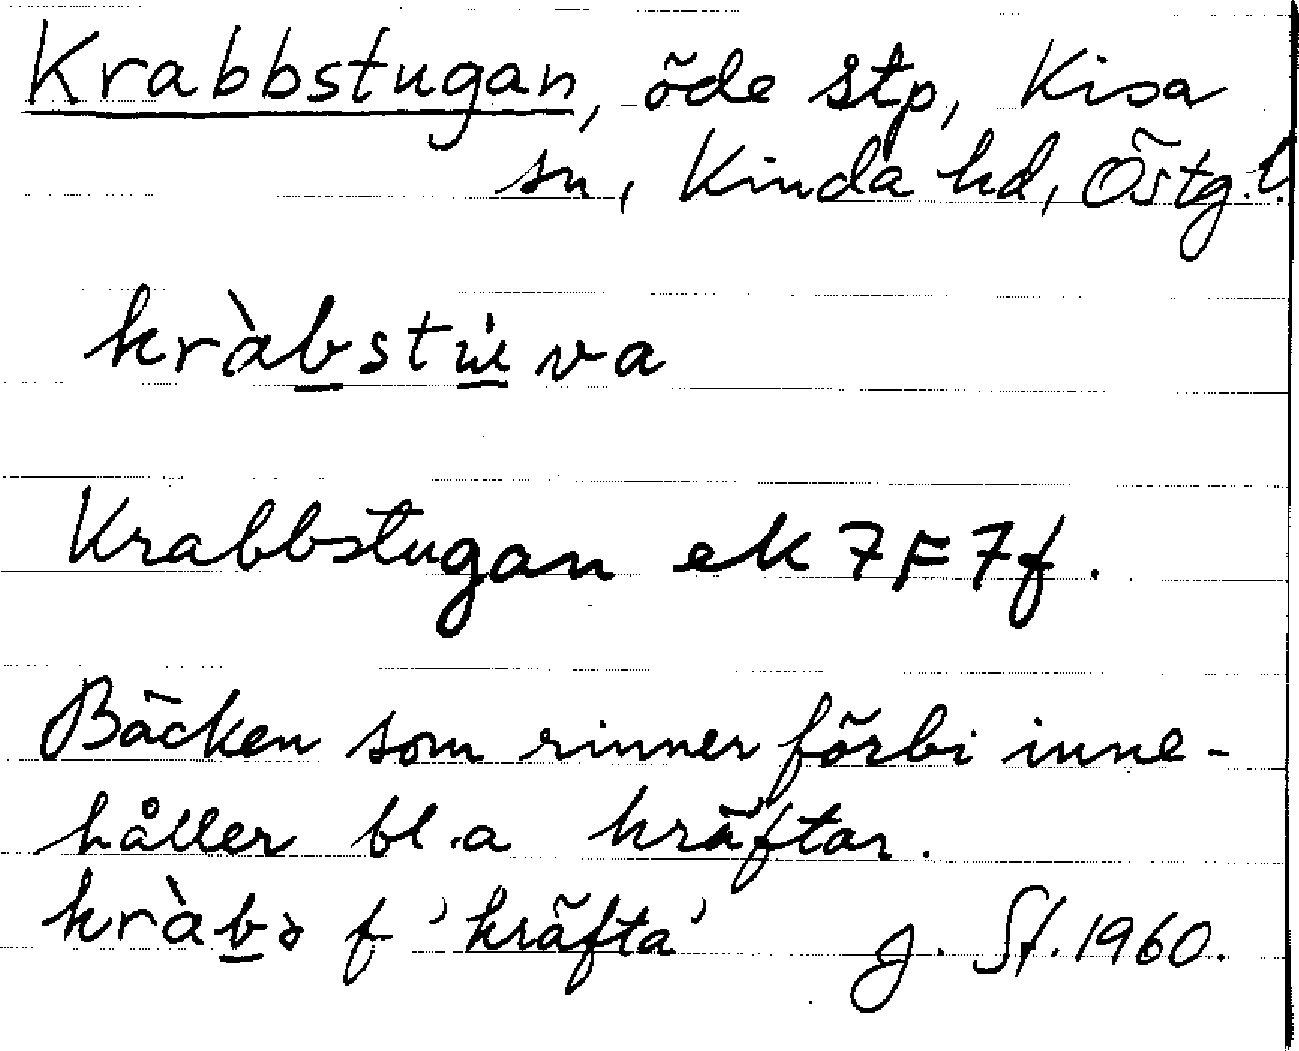 Krabbstugan, öde stp, Kisa
sn, Kinda hd, Östg.l.
kràbstu̇va
Krabbstugan ek 7F7f.
Bäcken som rinner förbi inne-
håller bl.a kräftar.
kràbə f 'kräfta' J. St. 1960.